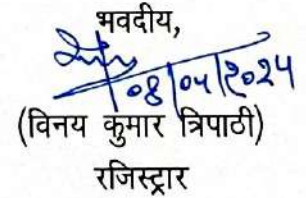 भवदीय,
08/04/2024
(विनय कुमार त्रिपाठी)
रजिस्ट्रार